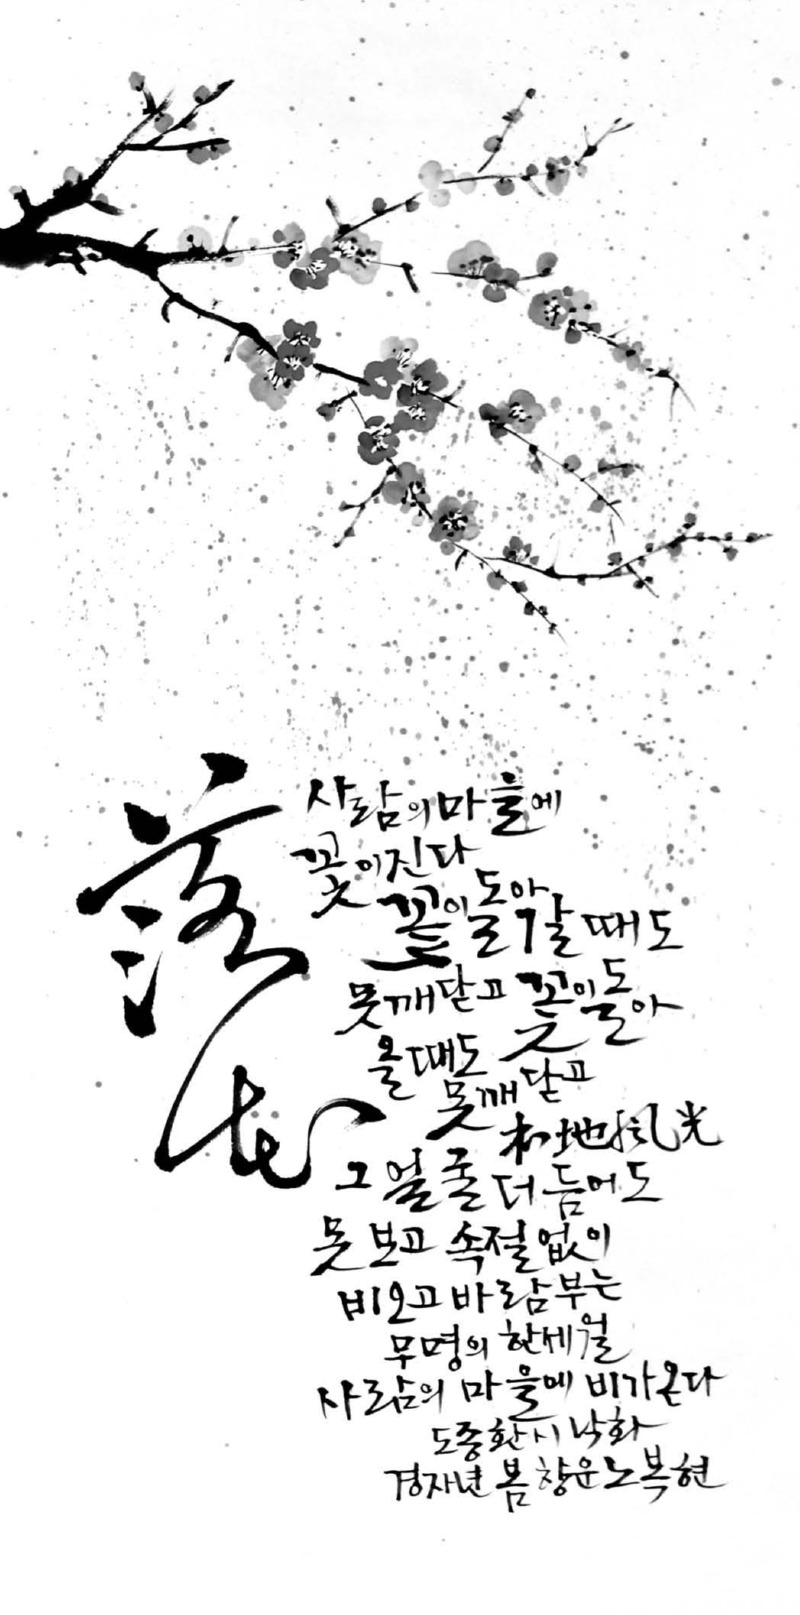 落花
사람의 마을에
꽃이 진다
꽃이 돌아갈 때도
못 깨닫고 꽃이 돌아
올 때도 못 깨닫고
本地風光
그 얼굴 더듬어도
못 보고 속절없이
비 오고 바람 부는
무명의 한 세월
사람의 마을에 비가 온다
도종환 시 낙화
경자년 봄 창운 노복현